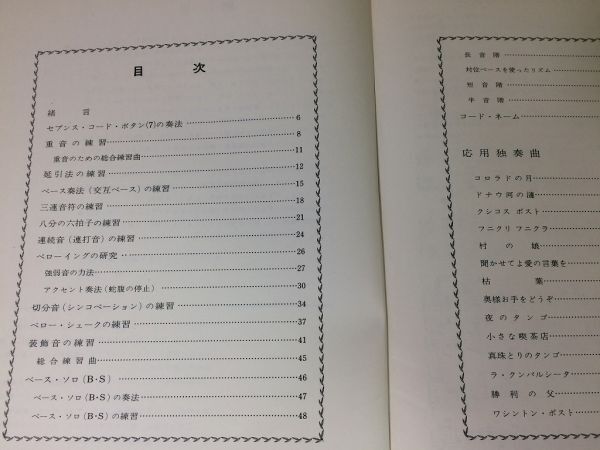 目次
緒言
セブンス・コード・ボタン(7)の奏法 6
重音の練習 8
重音のための総合練習曲 11
延引法の練習 12
ベース奏法(交互ベース)の練習 15
三連音符の練習 18
八分の六拍子の練習 21
連続音(連打音)の練習 24
ベローイングの研究 26
強弱音の力法 27
アクセント奏法(蛇腹の停止) 30
切分音(シンコペーション)の練習 34
ベロー・シェークの練習 37
装飾音の練習 41
総合練習曲 45
ベース・ソロ(B・S) 46
ベース・ソロ(B・S)の奏法 47
ベース・ソロ(B・S)の練習 48
長音階
対位ベースを使ったリズム
短音階
半音階
コード・ネーム
応用独奏曲
コロラドの月
ドナウ河の漣
クシコス ポスト
フニクリ フニクラ
村の娘
聞かせてよ愛の言葉を
枯葉
奥様お手をどうぞ
夜のタンゴ
小さな喫茶店
真珠とりのタンゴ
ラ・クンパルシータ
勝利の父
ワシントン・ポスト